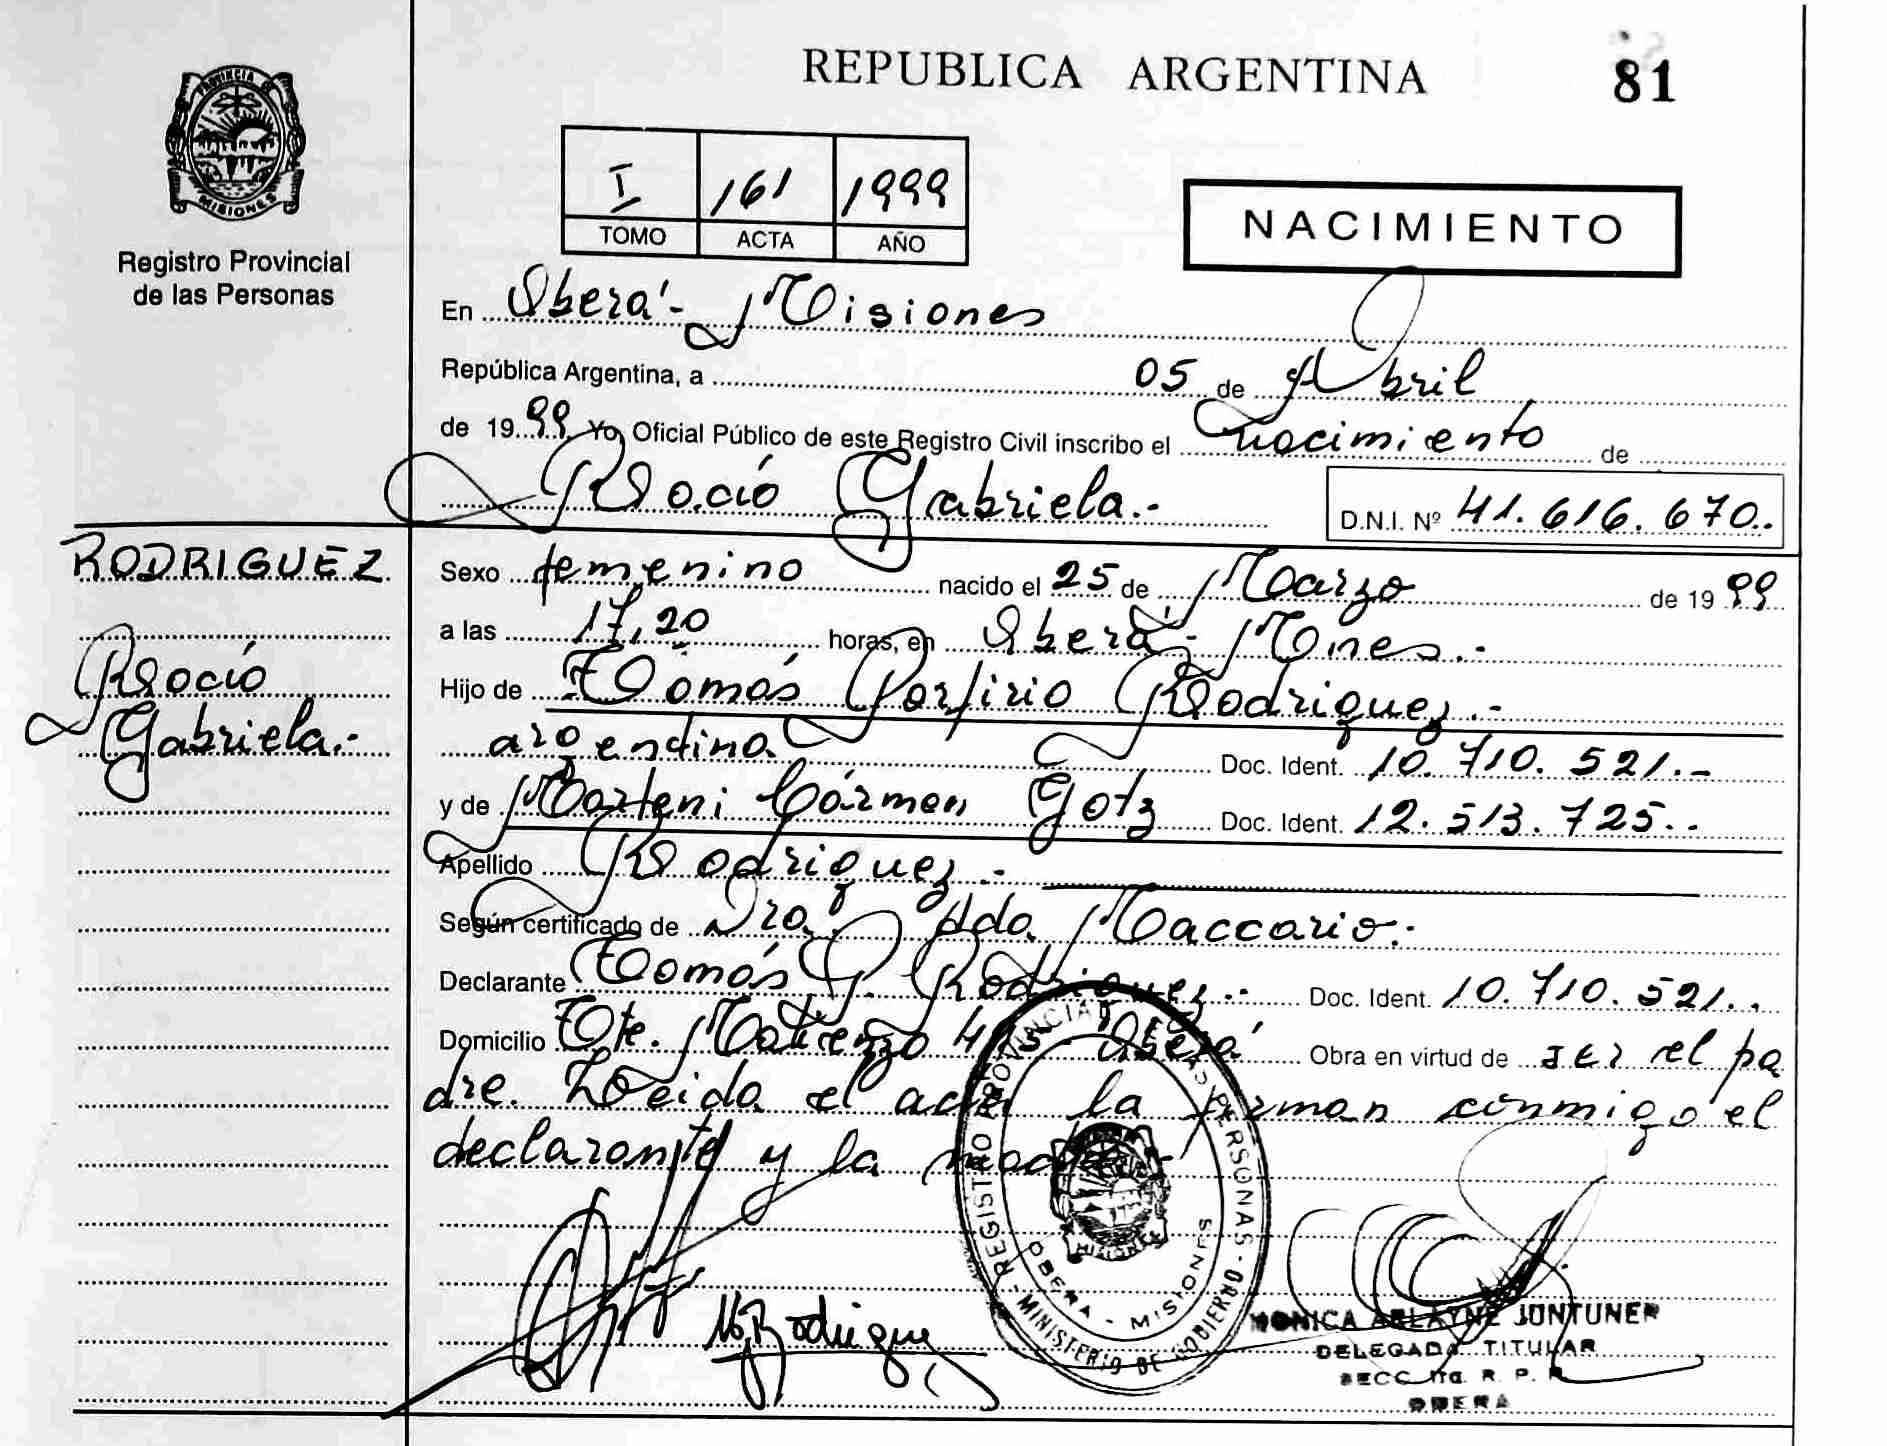 REPUBLICA ARGENTINA
81
PROVINCIA
MISIONES
Registro Provincial
de las Personas
I 161 1999
TOMO ACTA AÑO
NACIMIENTO
En Oberá - Misiones
República Argentina, a 05 de Abril
de 1999 Yo, Oficial Público de este Registro Civil inscribo el nacimiento de
Rocío Gabriela.-
D.N.I. Nº 41.616.670..
RODRIGUEZ
Rocío
Gabriela.-
Sexo femenino nacido el 25 de Marzo de 1999
a las 17,20 horas, en Oberá - Mnes.-
Hijo de Tomás Porfirio Rodriguez.-
argentina Doc. Ident. 10.710.521.-
y de Marleni Cármen Gotz Doc. Ident. 12.513.725..
Apellido Rodriguez.-
Según certificado de Dra. Ada Maccario.-
Declarante Tomás P. Rodriguez.- Doc. Ident. 10.710.521..
Domicilio Tte. Matienzo 415 Oberá Obra en virtud de ser el pa
dre. Leida el acta la firman conmigo el
declarante y la madre.-
REGISTRO PROVINCIAL DE LAS PERSONAS - MINISTERIO DE GOBIERNO -
MISIONES
OBERA - MISIONES
Rodriguez
MONICA JUNTUNEN
DELEGADA TITULAR
SECC. R. P.
OBERÁ